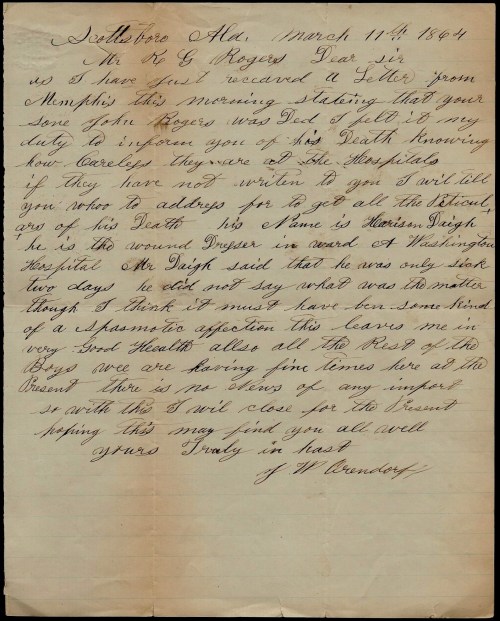 Scottsboro Ala. March 11th 1864
Mr R G Rogers Dear sir
as I have just receaved a Letter from
Memphis this morning stateing that your
sone John Rogers was Ded I felt it my
duty to inform you of his Death Knowing
how Careless they are at the Hospitals
if they have not writen to you I wil till
you whoo to address for to get all the Peticul
ars of his Death his Name is Harison Daigh
he is the wound Dresser in ward A Washington
Hospital Mr Daigh said that he was only sick
two days he did not say what was the matter
though I think it must have ben some Kind
of a spasmotic affection this leaves me in
very Good Health allso all the Rest of the
Boys wee are having fine times here at the
Present there is no News of any import
so with this I wil close for the Present
hoping this may find you all well
yours Truly in hast
J W Orendorff